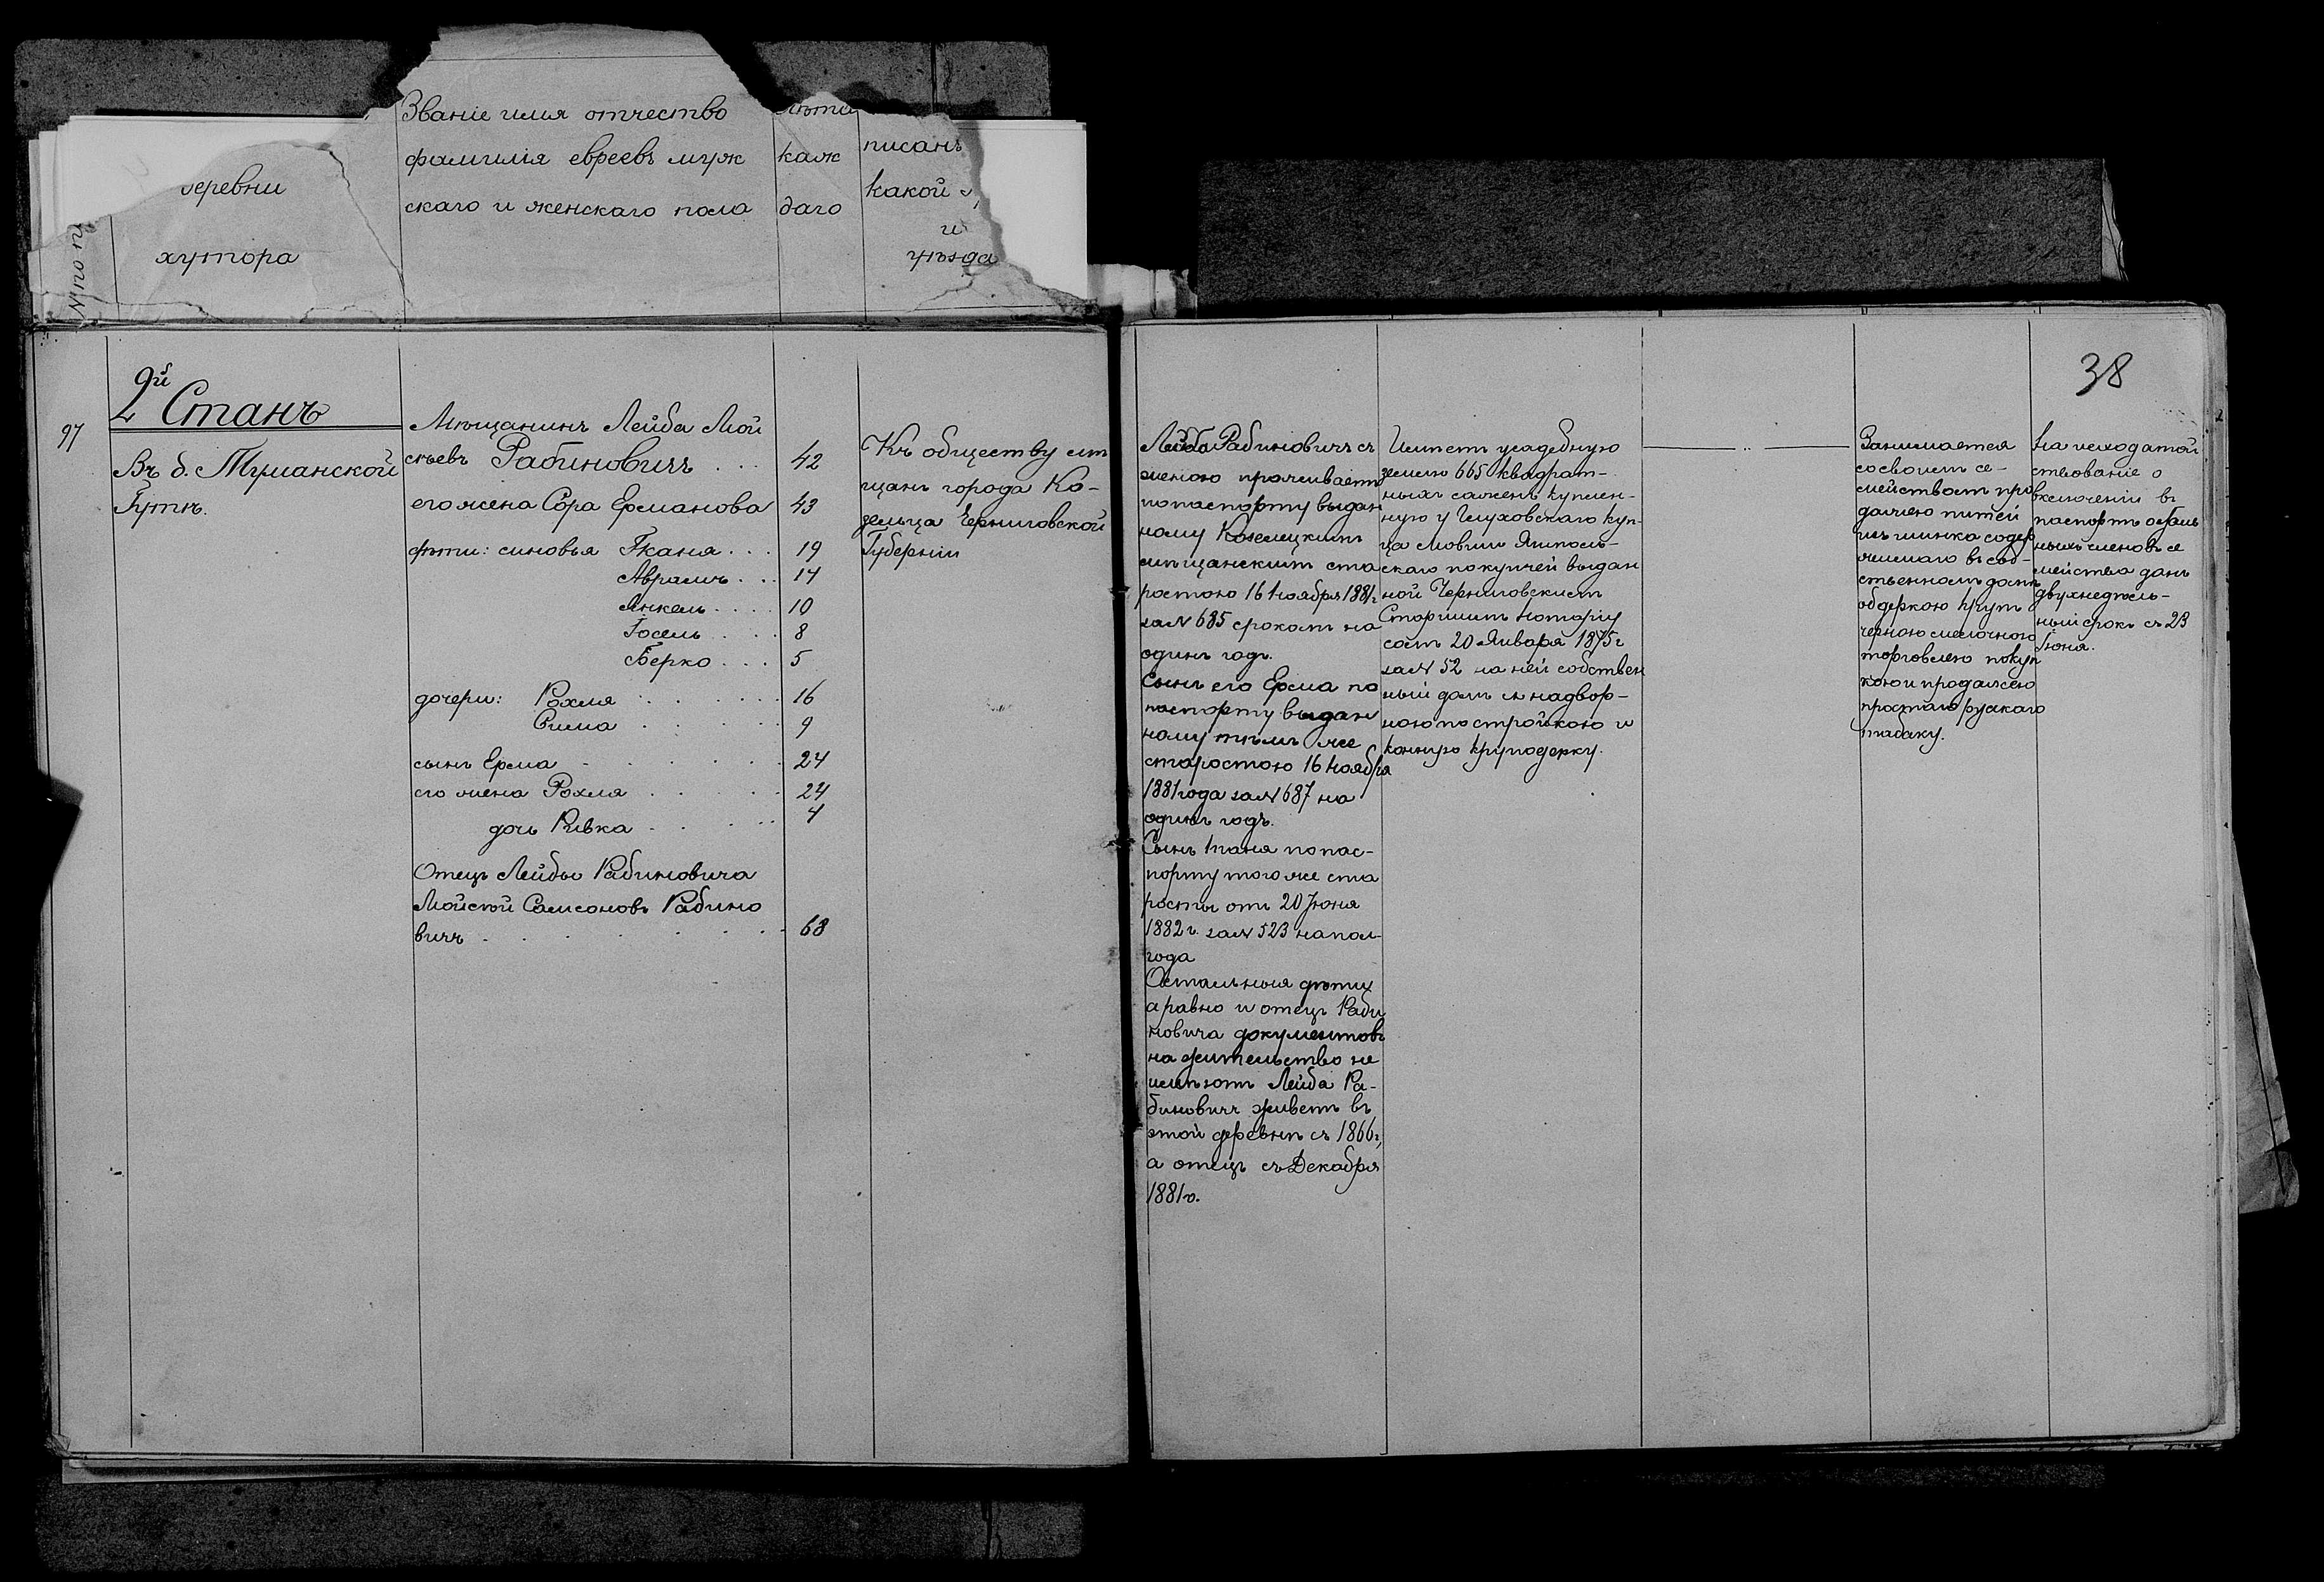 Званіе имя отчество
фамилія евреевъ муж
скаго и женскаго пола
лѣта
каж
даго
писанъ
какой
и
уѣзда
деревни
хутора
№ по п
38
2й Станъ
97
Въ д. Туманской
Гутѣ.
Мѣщанинъ Лейба Мой
сѣевъ Рабиновичъ . . . 42
его жена Сора Ермановa 43
дѣти: синовья Ткання . . . 19
Аврамъ . . . 14
Янкель . . . . 10
Іосель . . . . 8
Берко . . . 5
дочери: Рохля . . . . . . 16
Сима . . . . . 9
сынъ Ерма . . . . . . 24
его жена Рохля . . . . . 24
дочь Ривка . . . . . 4
Отецъ Лейбы Рабиновича
Мойсѣй Самсоновъ Рабино
вичъ . . . . . . . . 68
Къ обществу мѣ
щанъ города Ко-
зельца Черниговской
Губерніи
Лейба Рабиновичъ съ
женою проживаетъ
по паспорту выдан
ному Козелецкимъ
мѣщанскимъ ста
ростою 16 Ноября 1881 г.
за № 685 срокомъ на
одинъ годъ.
Сынъ его Ерма по
паспорту выдан
ному тѣмъ же
старостою 16 Ноября
1881 года за № 687 на
одинъ годъ.
Сынъ по пас-
порту того же ста
росты отъ 20 Іюня
1882 г. за № 523 на пол-
года
Остальныя дѣти
а равно и отецъ Раби
новича документовъ
на жительство не
имѣютъ Лейба Ра-
биновичъ живетъ въ
этой деревнѣ съ 1866 г.,
а отецъ съ Декабря
1881 г.
Имѣетъ усадебную
землю 665 квадрат-
ныхъ сажень куплен-
ную у Глуховскаго куп-
ца Мовши Ямполь-
скаго по купчей выдан
ной Черниговскимъ
Старшимъ Нотаріу
сомъ 20 Января 1875 г.
за № 52 на ней собствен
ный домъ съ надвор-
ною постройкою и
конную круподерку.
Занимается
со своимъ се-
мействомъ про
дажею питей
изъ шинка содер
жимаго въ соб-
ственномъ домѣ
обдеркою крупъ
черною мелочного
торговлею покуп
кою и продажею
простаго рускаго
табаку.
На исходатай
ствованіе о
включеніи въ
паспортъ осталь
ныхъ членовъ се
мейства данъ
двухнедѣль-
ный срокъ съ 23
Іюня.